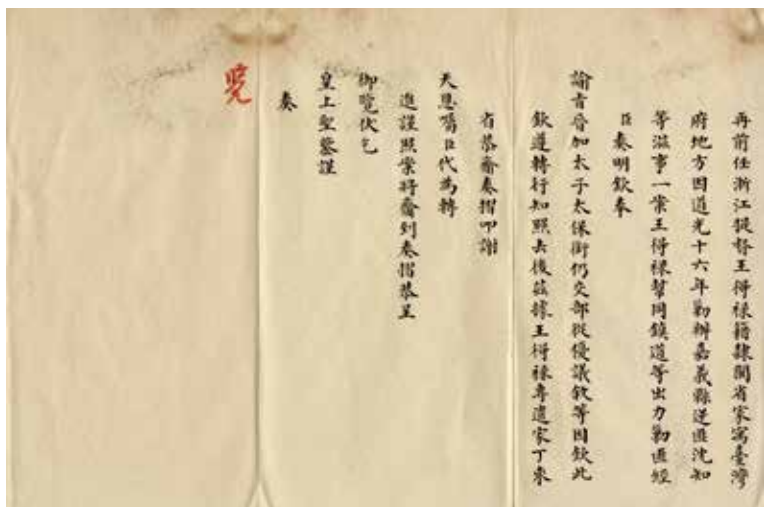 再前任浙江提督王得祿籍隸閩省家寓臺灣
府地方因道光十六年勦辦嘉義縣逆匪沈知
等滋事一案王得祿幫同鎮道等出力勦匪經
臣奏明欽奉
諭旨晉加太子太保銜仍交部從優議敘等因欽此
欽遵轉行知照去後茲據王得祿專遣家丁來
省恭齎奏摺叩謝
天恩囑臣代為轉
進謹照案將齎到奏摺恭呈
御覽伏乞
皇上聖鑒謹
奏
覽